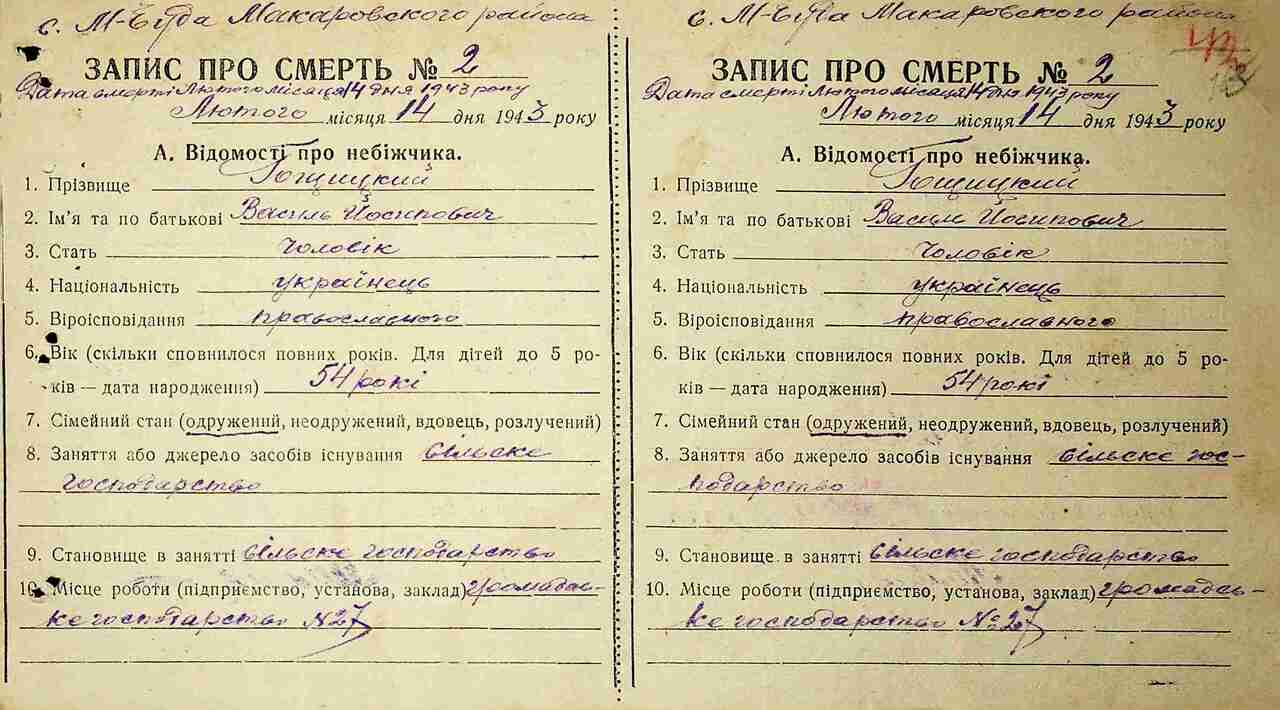 с. М-Буда Макаровского района
ЗАПИС ПРО СМЕРТЬ № 2
Дата смерті Лютого місяця 14 дня 1943 року
Лютого місяця 14 дня 1943 року
А. Відомості про небіжчика.
1. Прізвище Гощицкий
2. Ім'я та по батькові Василь Йосипович
3. Стать Чоловік
4. Національність українець
5. Віроісповідання православного
6. Вік (скільки сповнилося повних років. Для дітей до 5 ро-
ків — дата народження) 54 рокі
7. Сімейний стан (одружений, неодружений, вдовець, розлучений)
8. Заняття або джерело засобів існування сільске
господарство
9. Становище в занятті сільске господарство
10. Місце роботи (підприємство, установа, заклад) громадсь-
ке господарство №27
с. М-Буда Макаровского района
ЗАПИС ПРО СМЕРТЬ № 2
Дата смерті Лютого місяця 14 дня 1943 року
Лютого місяця 14 дня 1943 року
А. Відомості про небіжчика.
1. Прізвище Гощицкий
2. Ім'я та по батькові Васил Йосипович
3. Стать Чоловік
4. Національність українець
5. Віроісповідання православного
6. Вік (скільки сповнилося повних років. Для дітей до 5 ро-
ків — дата народження) 54 рокі
7. Сімейний стан (одружений, неодружений, вдовець, розлучений)
8. Заняття або джерело засобів існування сільске гос-
подарство
9. Становище в занятті сільске господарство
10. Місце роботи (підприємство, установа, заклад) громадсь-
ке господарство №27